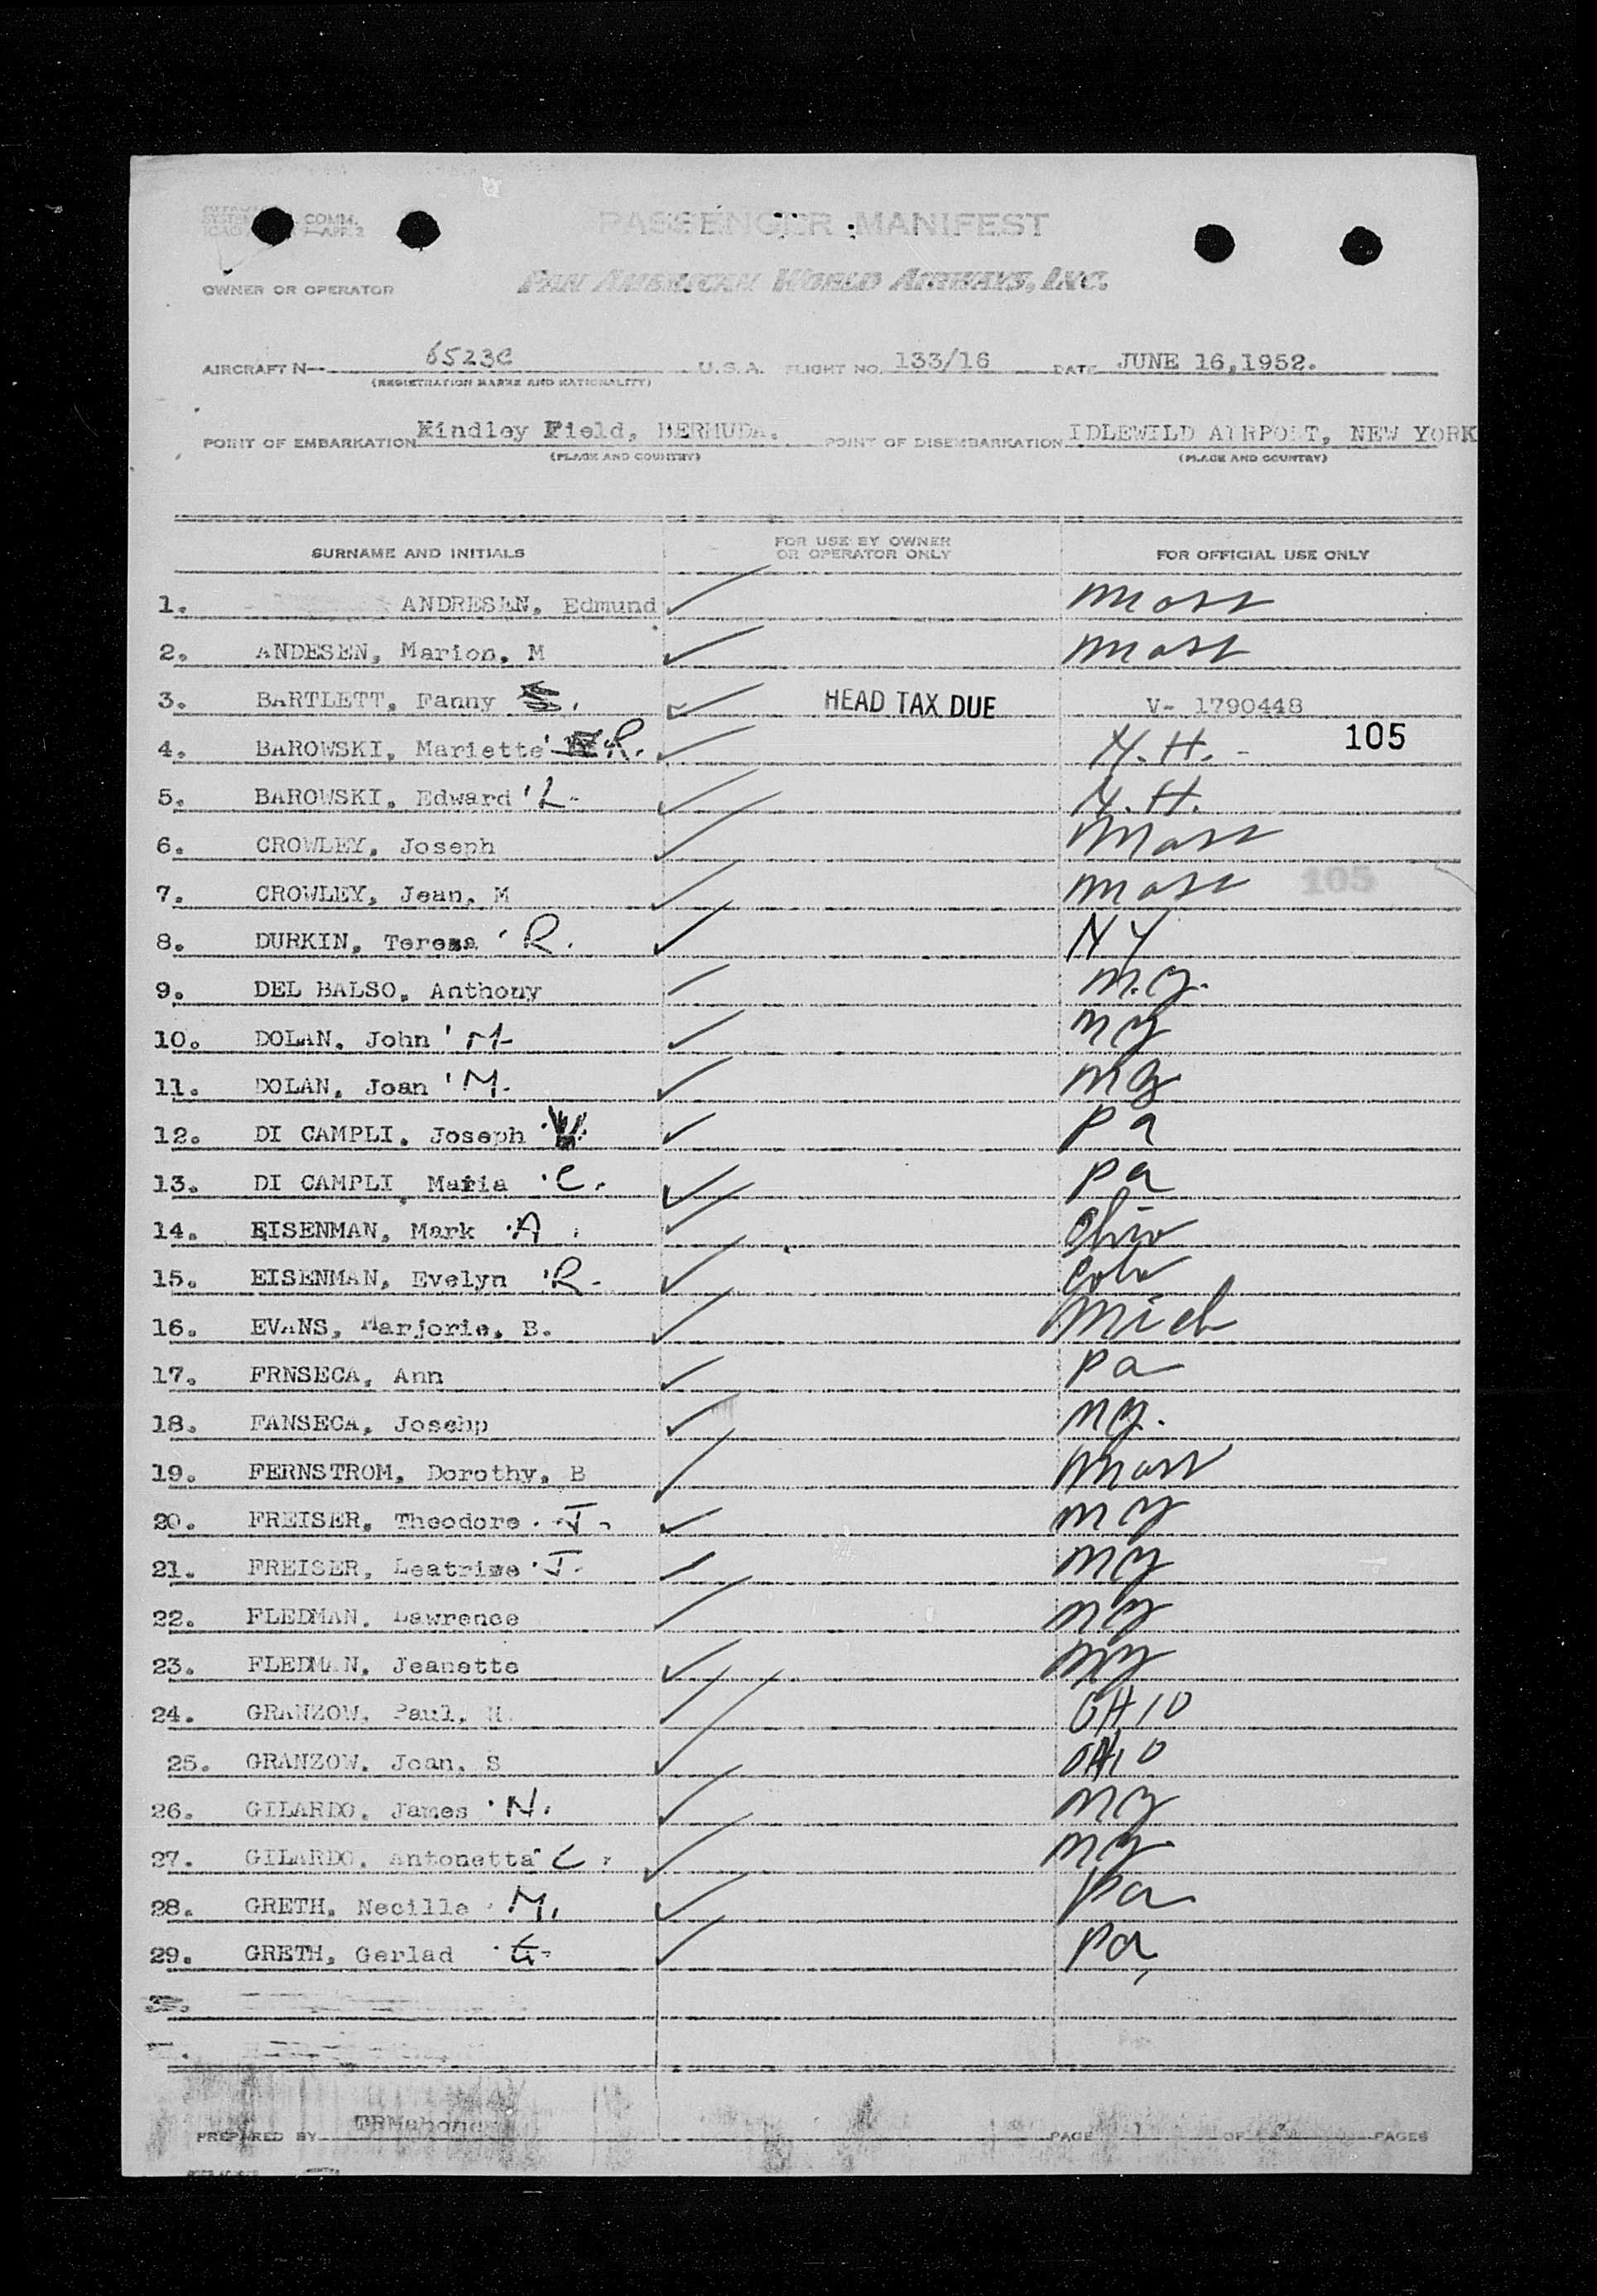 COMM.
ICAO APP. 2
PASSENGER MANIFEST
OWNER OR OPERATOR
PAN AMERICAN WORLD AIRWAYS, INC.
AIRCRAFT N 6523C U.S.A. FLIGHT NO. 133/16 DATE JUNE 16,1952.
(REGISTRATION MARKS AND NATIONALITY)
POINT OF EMBARKATION Kindley Field, BERMUDA. POINT OF DISEMBARKATION IDLEWILD AIRPORT, NEW YORK
(PLACE AND COUNTRY) (PLACE AND COUNTRY)
SURNAME AND INITIALS FOR USE BY OWNER OR OPERATOR ONLY FOR OFFICIAL USE ONLY
1. ANDRESEN, Edmund ✓ Mass
2. ANDESEN, Marion, M ✓ Mass
3. BARTLETT, Fanny ✓ HEAD TAX DUE V- 1790448
4. BAROWSKI, Mariette R. ✓ N.H. - 105
5. BAROWSKI, Edward L. ✓ N.H.
6. CROWLEY, Joseph ✓ Mass
7. CROWLEY, Jean, M ✓ Mass 105
8. DURKIN, Teresa R. ✓ NY
9. DEL BALSO, Anthony ✓ N.Y.
10. DOLAN, John M. ✓ NY
11. DOLAN, Joan M. ✓ NY
12. DI CAMPLI, Joseph ✓ Pa
13. DI CAMPLI, Maria C. ✓ Pa
14. EISENMAN, Mark A. ✓ Ohio
15. EISENMAN, Evelyn R. ✓
16. EVANS, Marjorie, B. ✓ Mich
17. FRNSECA, Ann ✓ Pa
18. FANSECA, Josehp ✓ NY.
19. FERNSTROM, Dorothy, B ✓ Mass
20. FREISER, Theodore J. ✓ NY
21. FREISER, Leatrise J. ✓ NY
22. FLEDMAN, Lawrence ✓ NY
23. FLEDMAN, Jeanette ✓ NY
24. GRANZOW, Paul, H. ✓ OHIO
25. GRANZOW, Joan, S ✓ OHIO
26. GILARDO, James N. ✓ NY
27. GILARDO, Antonetta C. ✓ NY
28. GRETH, Necille M. ✓ Pa
29. GRETH, Gerlad G. ✓ Pa
PREPARED BY TRMahoney PAGE 1 OF PAGES